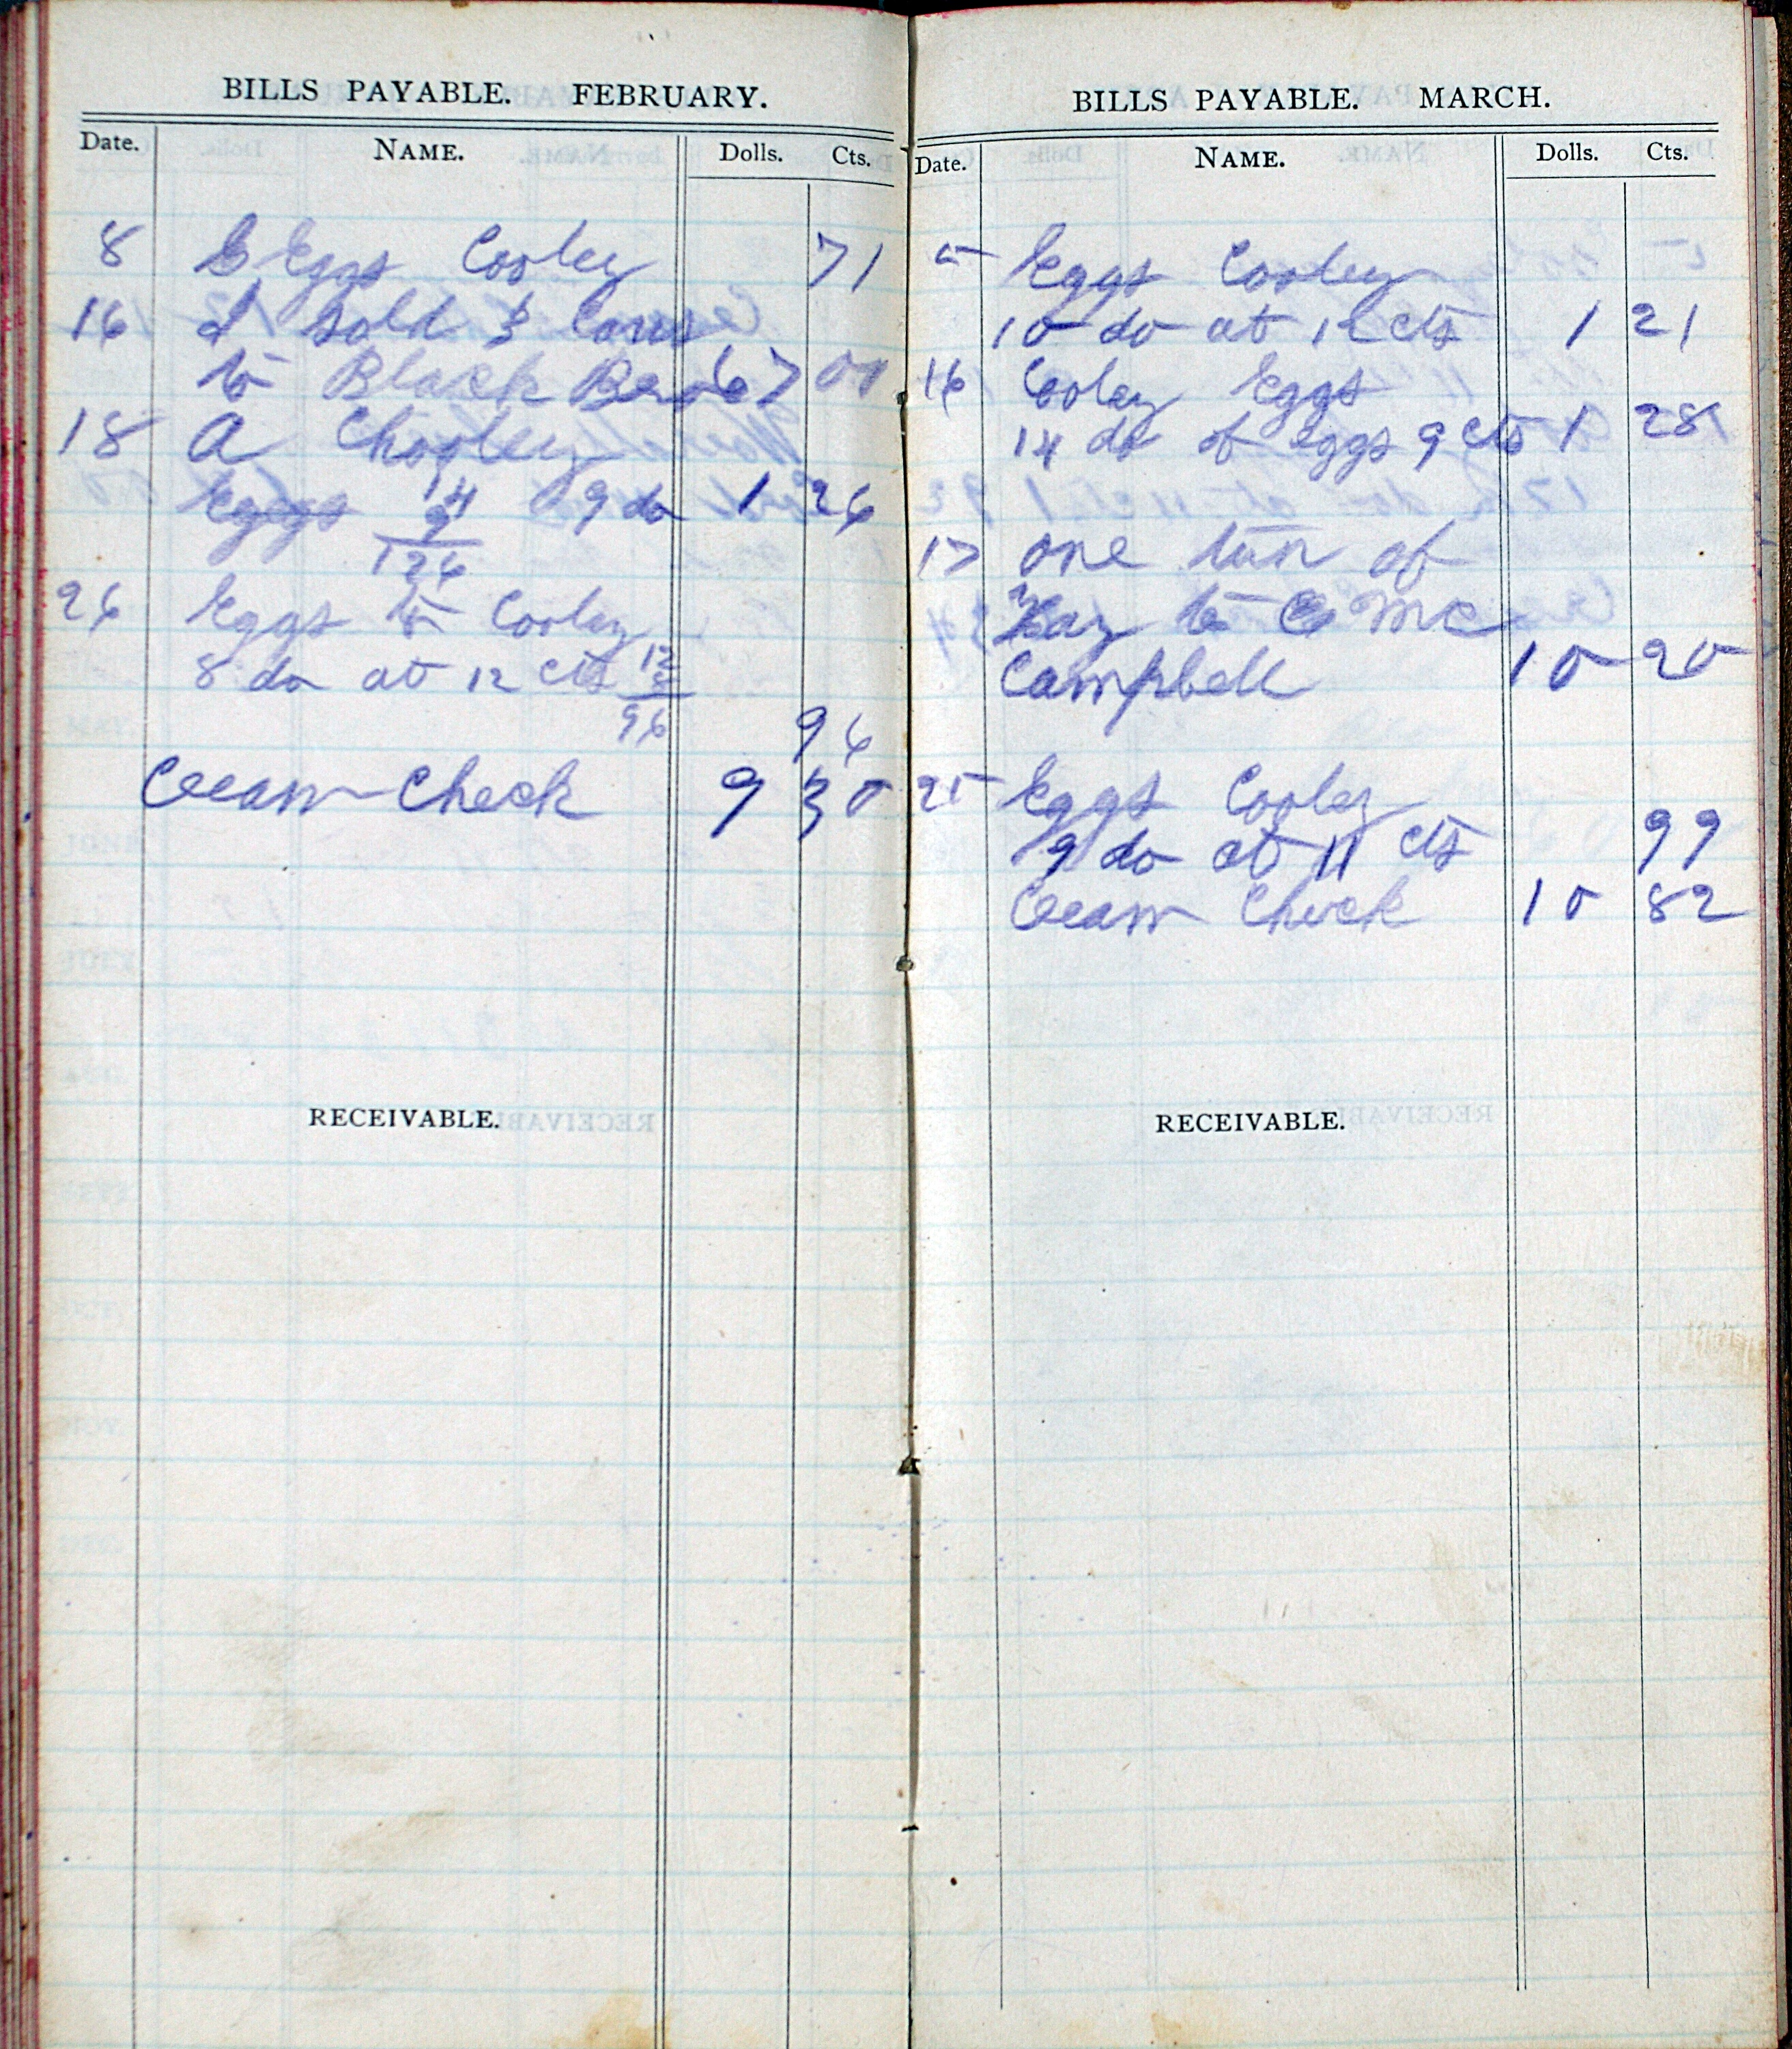 BILLS PAYABLE. FEBRUARY.
Date. NAME. Dolls. Cts.
8 Eggs Cooley 71
16 I Sold 3 Cows
to Black 67 00
18 A Chooley
Eggs 14 9 do 1 26
9
126
26 Eggs to Cooley
8 do at 12 cts 12
8
96
96
Cream Check 9 30
RECEIVABLE.
BILLS PAYABLE. MARCH.
Date. NAME. Dolls. Cts.
5 Eggs Cooley
10 do at 12 cts 1 21
16 Cooley Eggs
14 do of eggs 9 cts 1 28
17 one tun of
Hay to C Mc
Campbell 10 20
25 Eggs Cooley
9 do at 11 cts 99
Cream Check 10 82
RECEIVABLE.